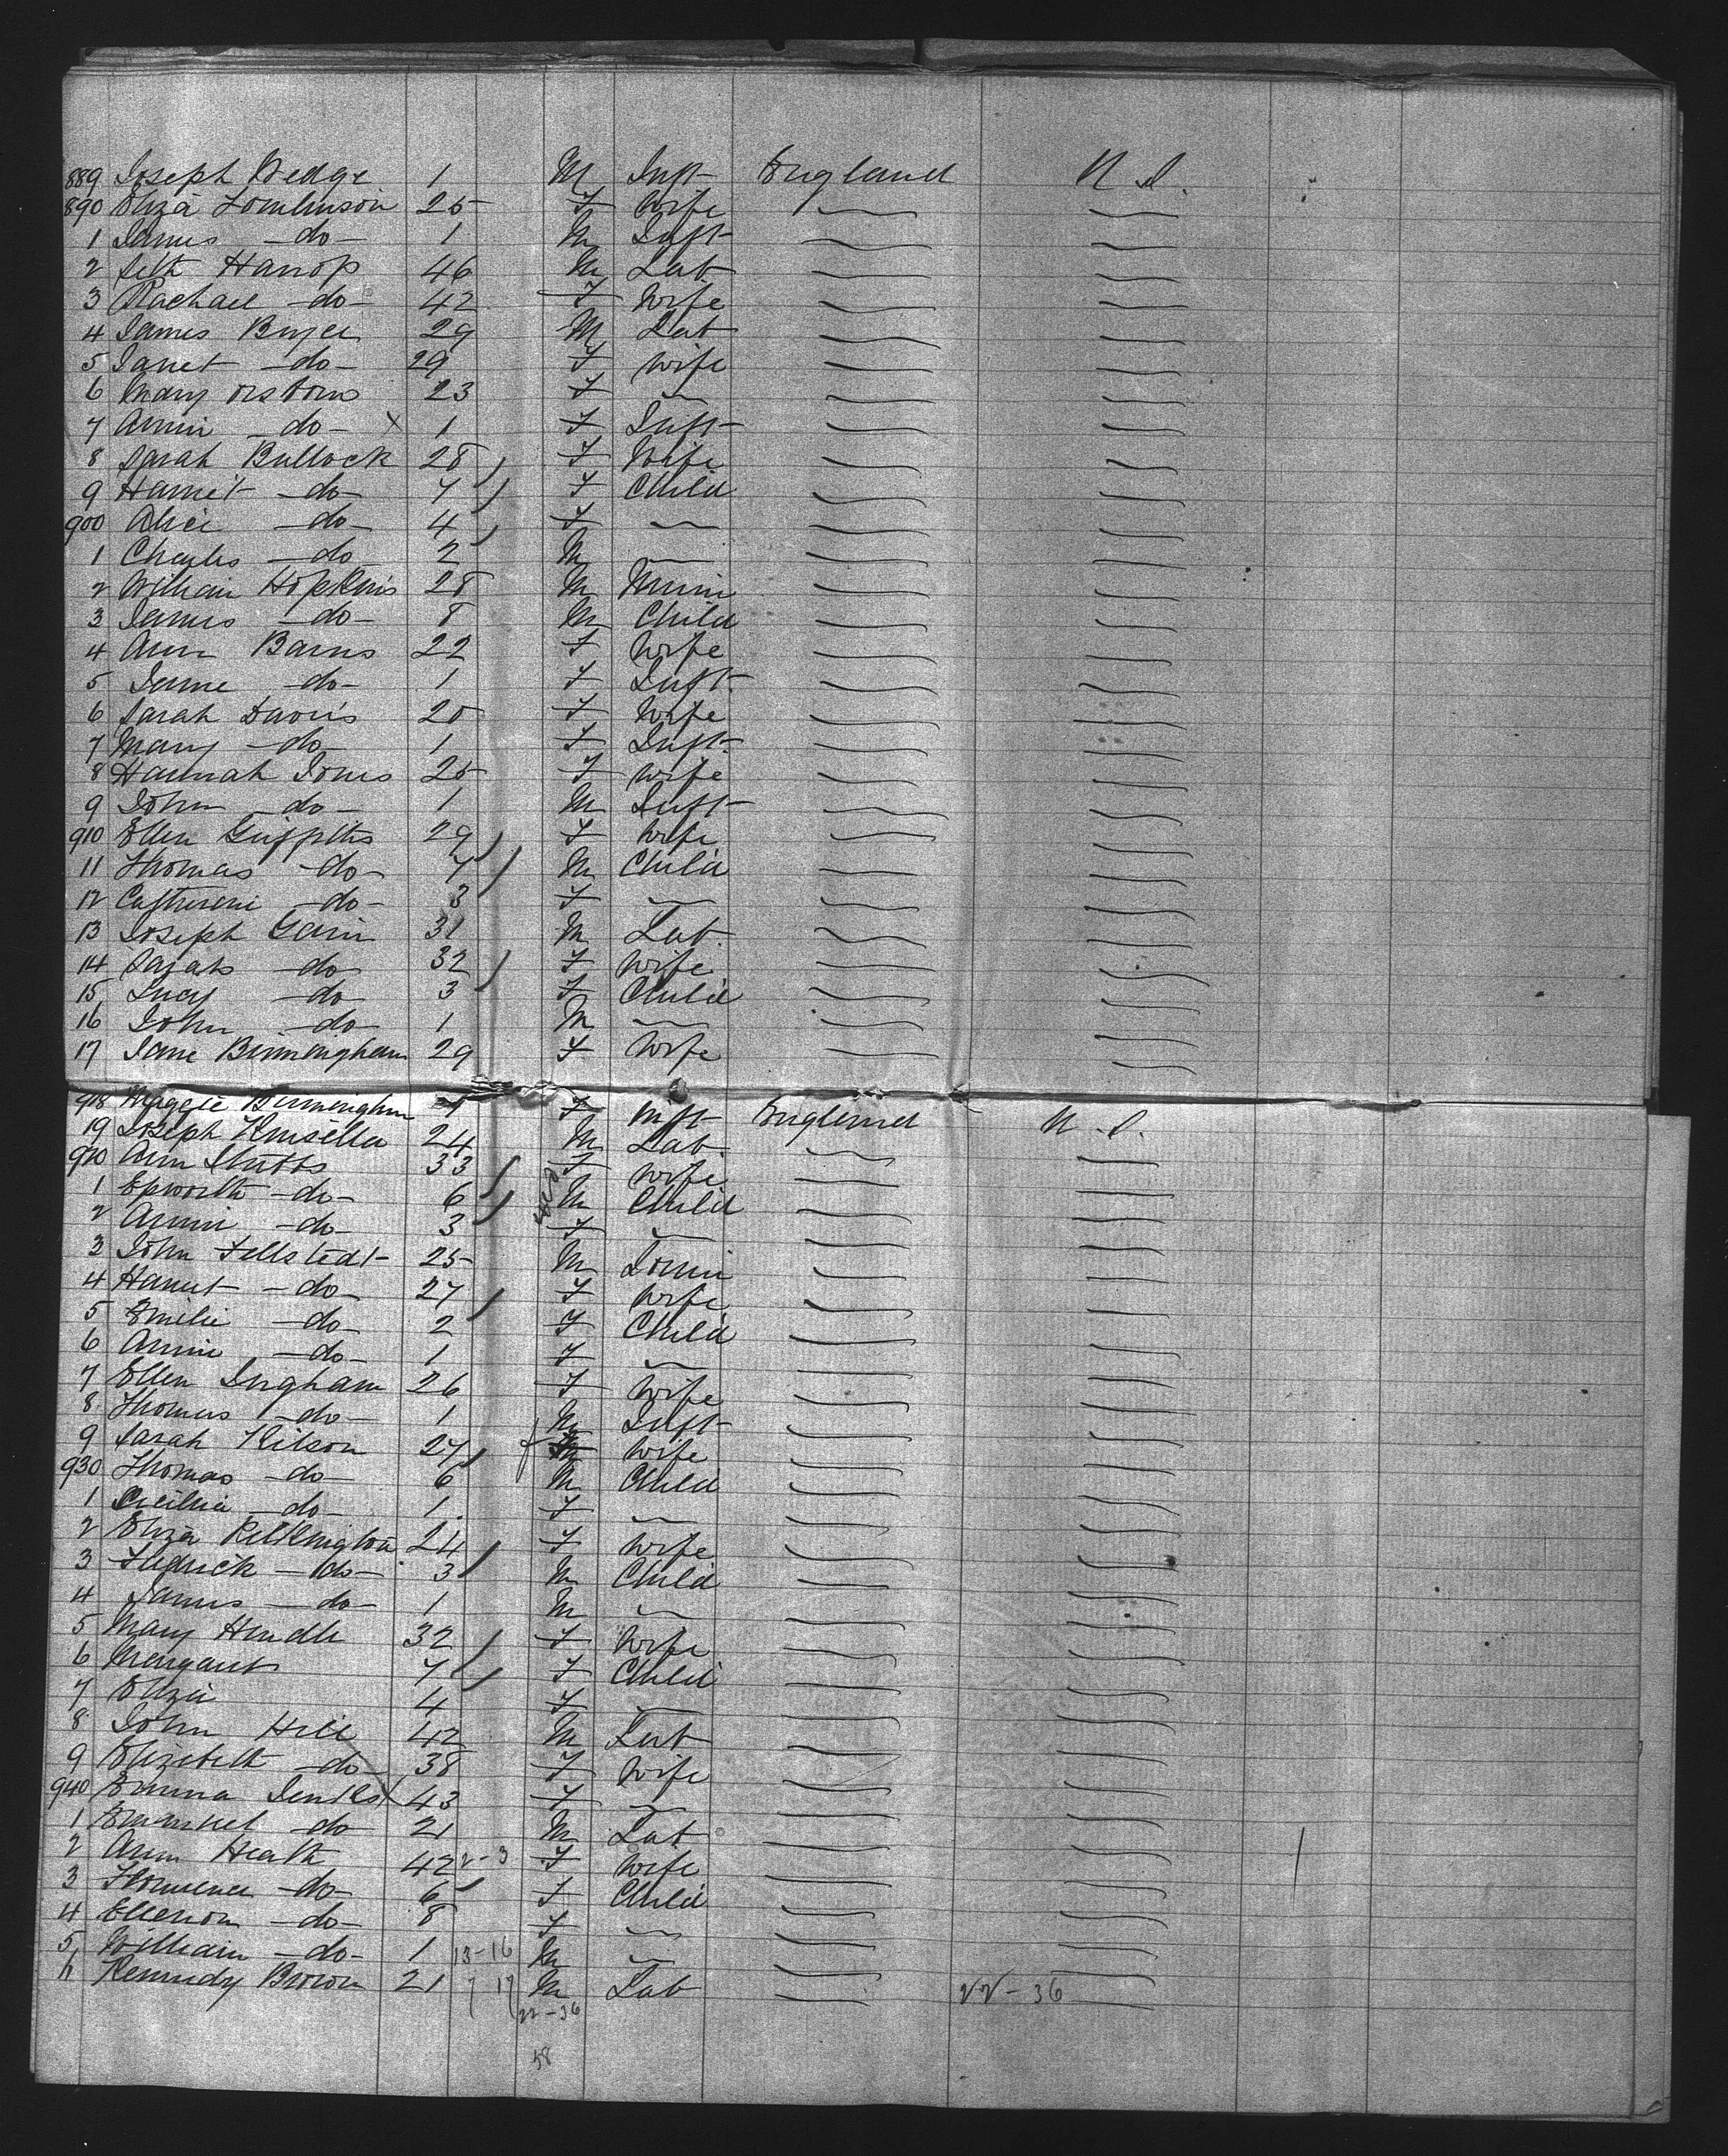 889 Joseph Wedge 1 M Inft England U.S.
890 Eliza Tomlinson 25 F Wife
1 James -do- 1 M Inft
2 Seth Harrop 46 M Lab
3 Rachael -do- 42 F Wife
4 James Buyer 29 M Lab
5 Janet -do- 29 F Wife
6 Mary Osborns 23 F
7 Annie -do- X 1 F Inft
8 Sarah Bullock 28 F Wife
9 Harriet -do- 7 F Child
900 Alice -do- 4 F
1 Charles -do 2 M
2 William Hopkins 28 M Miner
3 James -do- 8 M Child
4 Ann Barns 22 F Wife
5 Jane -do- 1 F Inft.
6 Sarah Davis 20 F Wife
7 Mary -do- 1 F Inft.
8 Hannah Jones 25 F Wife
9 John do- 1 M Inft
910 Ellen Griffiths 29 F Wife
11 Thomas -do- 7 M Child
12 Catherine -do- 3 F
13 Joseph 31 M Lab.
14 Sarah -do- 32 F Wife
15 Lucy -do- 3 F Child
16 John -do- 1 M
17 Jane Birmingham 29 F Wife
918 Maggie Birmingham 1 F Inft England U.S.
19 Joseph Kinsella 24 M Lab.
920 Ann Stubbs 33 F Wife
1 Epworth -do- 6 M Child
2 Annie -do- 3 F
3 John Fellstedt 25 M
4 Harriet -do- 27 F Wife
5 Emilie -do- 2 F Child
6 Annie -do- 1 F
7 Ellen Ingham 26 F Wife
8 Thomas -do- 1 M Inft
9 Sarah Kitson 27 f Wife
930 Thomas -do- 6 M Child
1 Cecilia -do- 1 F
2 Eliza Pilkington 24 F Wife
3 Fredrick -do- 3 M Child
4 James -do- 1 M
5 Mary Hindle 32 F Wife
6 Margaret 7 F Child
7 Eliza 4 F
8 John Hill 42 M Lab
9 Elizebeth -do- 38 F Wife
940 Emma Jenks 43 F
1 Emanuel -do 21 M Lab
2 Ann Heath 42 2-3 F Wife
3 Florence -do- 6 F Child
4 Ellenor -do- 8 F
5 William -do- 1 13-16 M
6 Kennedy Brown 21 7 17 M Lab 22-36
22-36
58